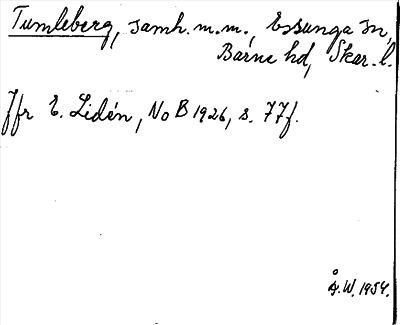 Tumleberg, samh. m.m., Essunga sn,
Barne hd, Skar. l.
Jfr E. Lidén, NoB 1926, s. 77f.
Å.W. 1954.